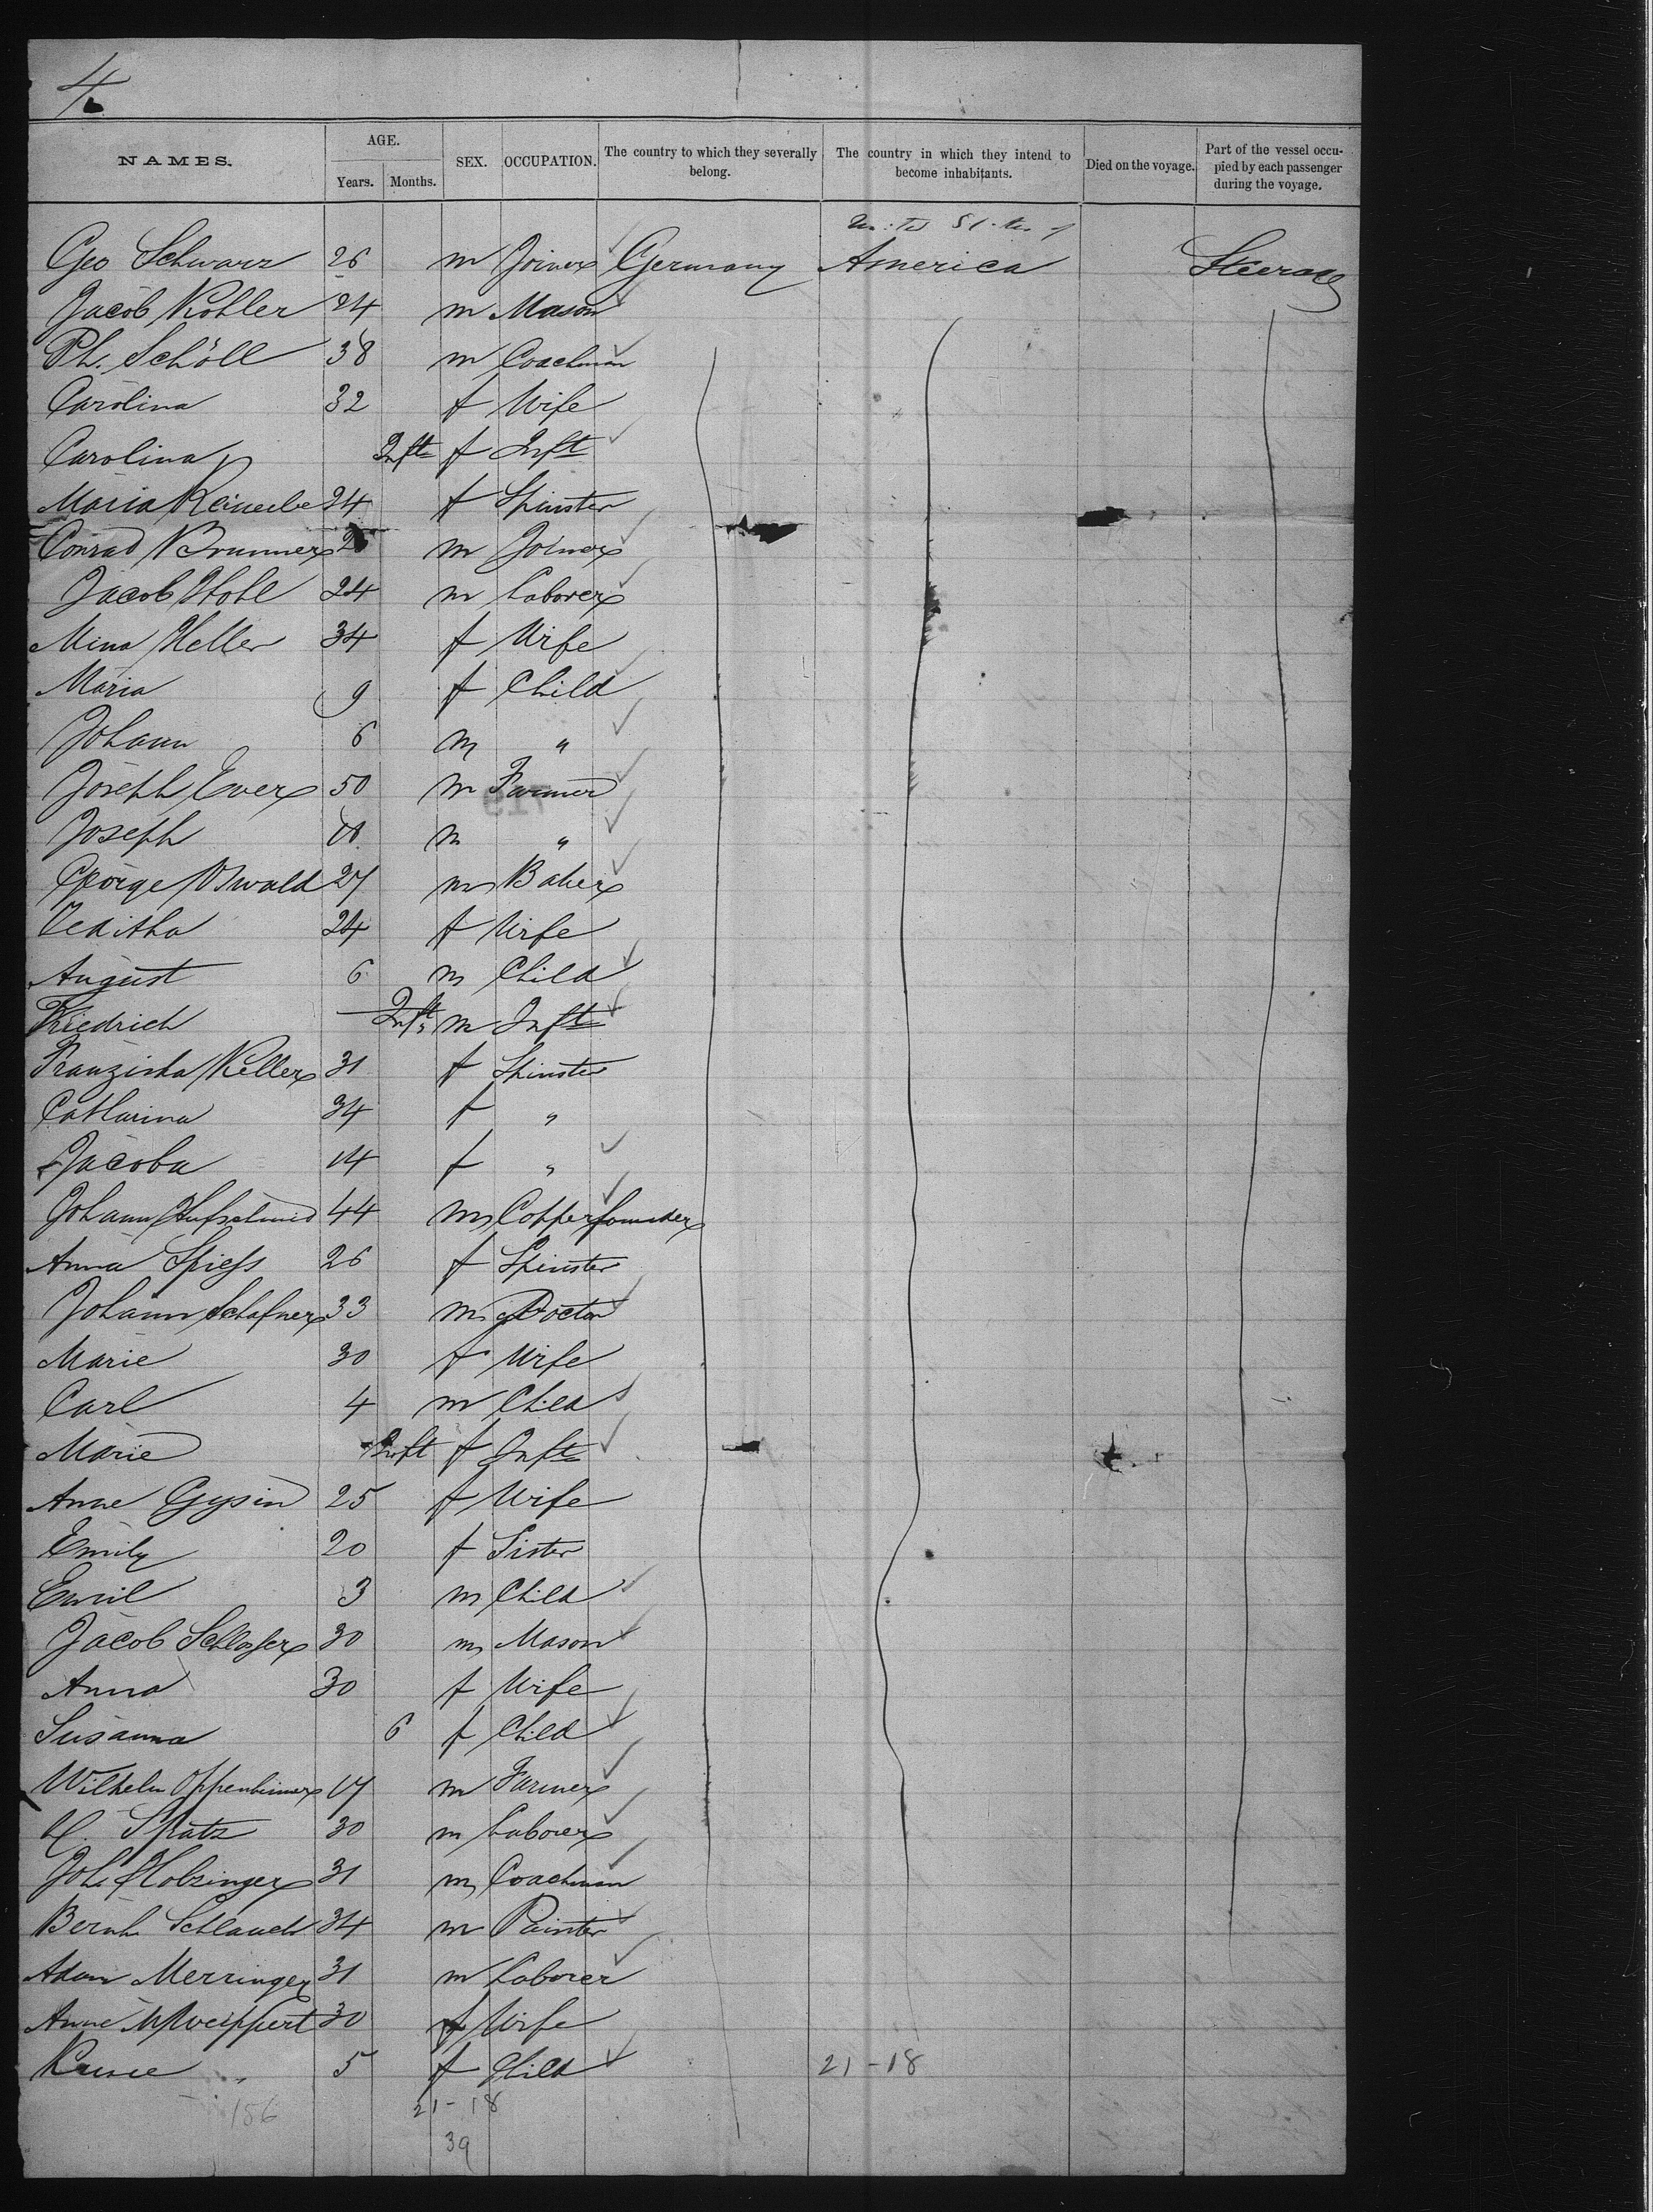 4.
NAMES. AGE. SEX. OCCUPATION. The country to which they severally belong. The country in which they intend to become inhabitants. Died on the voyage. Part of the vessel occupied by each passenger during the voyage.
Years. Months.
United States of
Geo Schwarz 26 m Joiner Germany America Steerage
Jacob Kohler 24 m Mason
Ph. Schöll 38 m Coachman
Carolina 32 f Wife
Carolina Inft f Inft
Maria 24 f Spinster
Conrad Brunner m Joiner
Jacob Hohl 24 m Laborer
Mina Heller 34 f Wife
Maria 9 f Child
Johann 6 m "
Joseph Ever 50 m Farmer
Joseph 18 m "
George Oswald 27 m Baker
24 f Wife
August 6 m Child
Friedrich Inft m Inft
Franziska Keller 31 f Spinster
Catharina 34 f "
Jacoba 14 f "
Johann Hufschmid 44 m Copperfounder
Anna Spiess 26 f Spinster
Johann Schafner 33 m Doctor
Marie 30 f Wife
Carl 4 m Child
Marie Inft f Inft
Anne Gysin 25 f Wife
Emily 20 f Sister
Emil 3 m Child
Jacob Schlosser 30 m Mason
Anna 30 f Wife
Susanna 6 f Child
Wilhelm Oppenheimer 17 m Farmer
Spatz 30 m Laborer
Joh. Holzinger 31 m Coachman
Bernh. Schlauch 34 m Painter
Adam Merringer 31 m Laborer
Anne M Weippert 30 f Wife
" 5 f Child 21-18
156 21-18
39